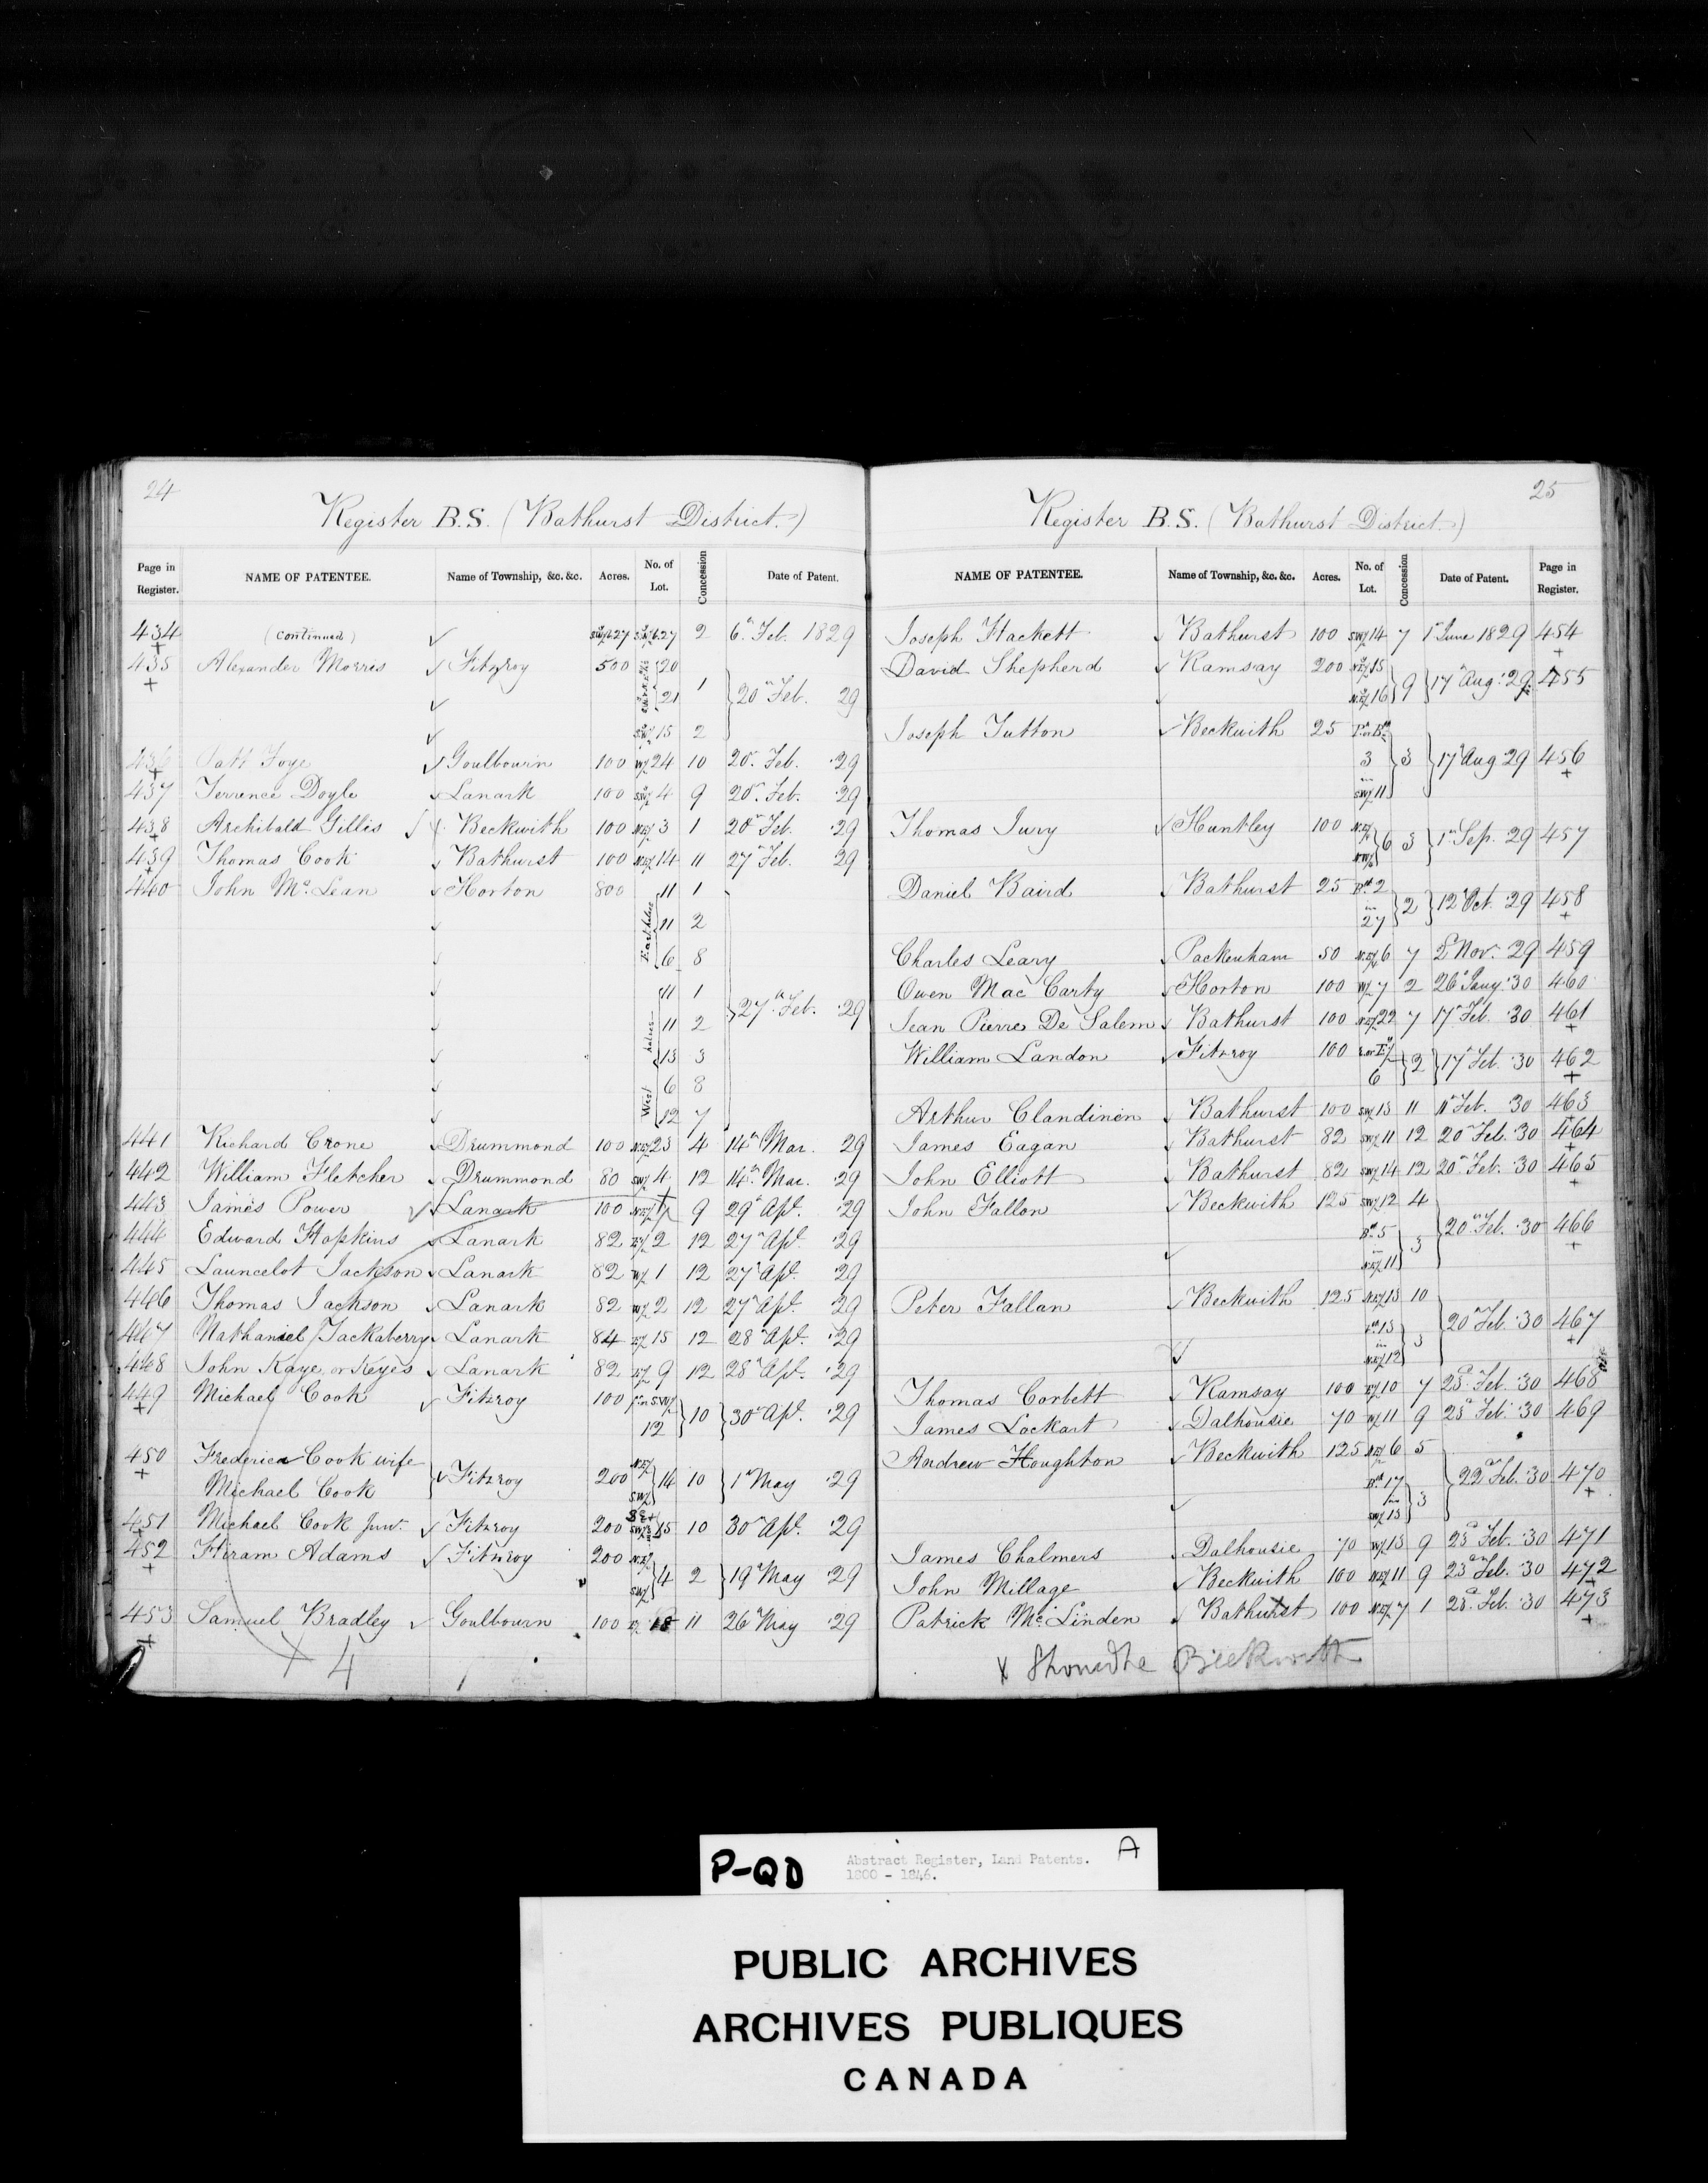 24
Register B.S. (Bathurst District.)
Page in Register. NAME OF PATENTEE. Name of Township, &c. &c. Acres. No. of Lot. Concession Date of Patent.
434 (Continued) 27 2 6th Feb. 1829
435 Alexander Morris Fitzroy 500 20
21 1 20th Feb. 29
15 2
436 Patt Foye Goulbourn 100 W½ 24 10 20th Feb. 29
437 Terrence Doyle Lanark 100 SW½ 4 9 20th Feb. 29
438 Archibald Gillis Beckwith 100 NE½ 3 1 20th Feb. 29
439 Thomas Cook Bathurst 100 NE½ 14 11 27th Feb. 29
440 John McLean Horton 800 East halves 11 1
11 2
6 8
West halves 11 1 27th Feb. 29
11 2
13 3
6 8
12 7
441 Richard Crone Drummond 100 NE½ 23 4 14th Mar. 29
442 William Fletcher Drummond 80 SW½ 4 12 14th Mar. 29
443 James Power Lanark 100 NE½ 9 29th Apl. 29
444 Edward Hopkins Lanark 82 E½ 2 12 27th Apl. 29
445 Launcelot Jackson Lanark 82 W½ 1 12 27th Apl. 29
446 Thomas Jackson Lanark 82 W½ 2 12 27th Apl. 29
447 Nathaniel Jackaberry Lanark 84 E½ 15 12 28th Apl. 29
448 John Kaye, or Keyes Lanark 82 E½ 9 12 28th Apl. 29
449 Michael Cook Fitzroy 100 SW½
12 10 30th Apl. 29
450 Frederica Cook wife
Michael Cook Fitzroy 200 NE½ SW½ 14 10 1st May 29
451 Michael Cook Junr. Fitzroy 200 15 10 30th Apl. 29
452 Hiram Adams Fitzroy 200 NE½
SW½ 4 2 19th May 29
453 Samuel Bradley Goulbourn 100 18 11 26th May 29
4
25
Register B.S. (Bathurst District.)
NAME OF PATENTEE. Name of Township, &c. &c. Acres. No. of Lot. Concession Date of Patent. Page in Register.
Joseph Hackett Bathurst 100 SW½ 14 7 1st June 1829 454
David Shepherd Ramsay 200 NE½ 15
NE½ 16 9 17th Aug. 29 455
Joseph Tutton Beckwith 25
3 3 17th Aug 29 456
in
SW½ 11
Thomas Jury Huntley 100 NE¼
NW¼ 6 3 1st Sep. 29 457
Daniel Baird Bathurst 25 2
in
27 2 12th Oct. 29 458
Charles Leary Packenham 50 NE¼ 6 7 2d Nov. 29 459
Owen Mac Carty Horton 100 W½ 7 2 26th Jany. 30 460
Jean Pierre De Salem Bathurst 100 NE½ 22 7 17th Feb. 30 461
William Landon Fitzroy 100
6 2 17th Feb. 30 462
Arthur Clandinen Bathurst 100 SW½ 13 11 11th Feb. 30 463
James Eagan Bathurst 82 SW½ 11 12 20th Feb. 30 464
John Elliott Bathurst 82 SW½ 14 12 20th Feb. 30 465
John Fallon Beckwith 125 SW½ 12 4
5
in 3 20th Feb. 30 466
NE½ 11
Peter Fallan Beckwith 125 NE½ 13 10
13
in 3 20th Feb. 30 467
NE½ 12
Thomas Corbett Ramsay 100 E½ 10 7 23d Feb. 30 468
James Lockart Dalhousie 70 W½ 11 9 23d Feb. 30 469
Andrew Houghton Beckwith 125 NE½ 6 5
17
in 3 22d Feb. 30 470
SW½ 13
James Chalmers Dalhousie 70 W½ 13 9 23d Feb. 30 471
John Millage Beckwith 100 NE½ 11 9 23d Feb. 30 472
Patrick McLinden Bathurst 100 NE½ 7 1 23d Feb. 30 473
x Should be Beckwith
P-QD
Abstract Register, Land Patents.
1800 - 1846.
A
PUBLIC ARCHIVES
ARCHIVES PUBLIQUES
CANADA